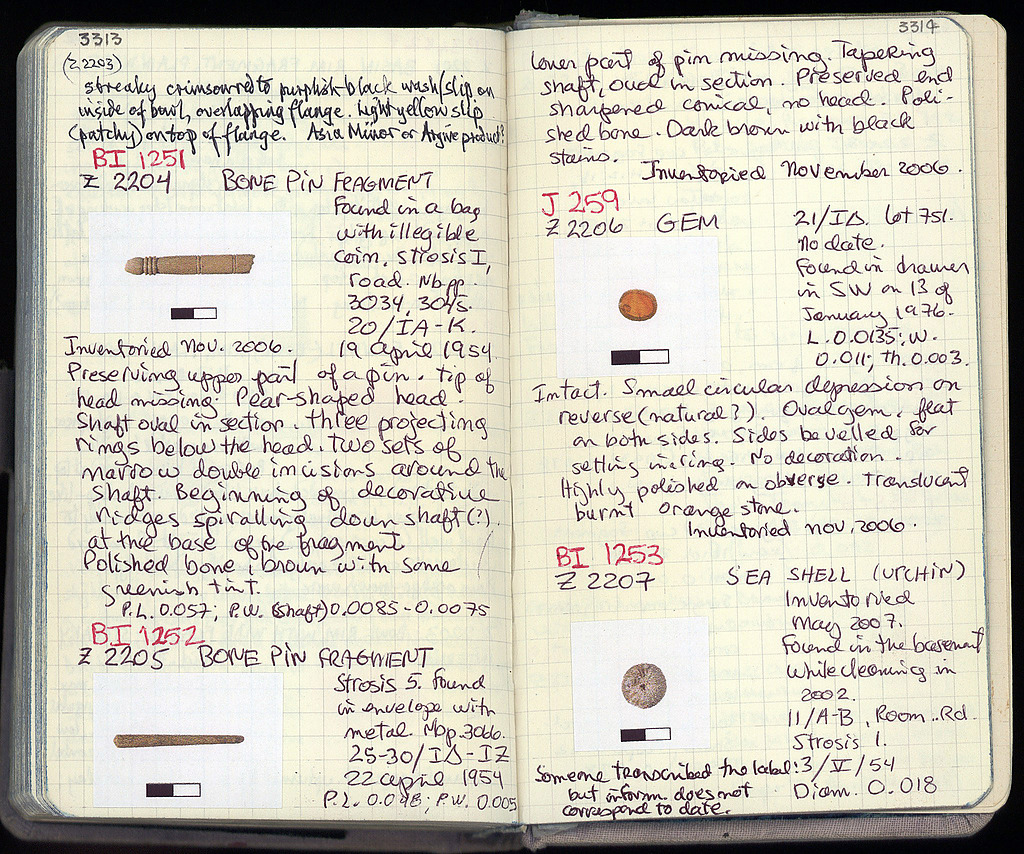 3313
(Z 2203)
streaky crimson red to purplish-black wash/slip on
inside of bowl, overlapping flange. Light yellow slip
(patchy) on top of flange. Asia Minor or Argive product?
BI 1251
Z 2204 BONE PIN FRAGMENT
Found in a bag
with illegible
coin, strosis I,
road. Nb pp.
3034, 3045.
20/IA-K.
Inventoried Nov. 2006. 19 April 1954
Preserving upper part of a pin. Tip of
head missing. Pear-shaped head.
Shaft oval in section. Three projecting
rings below the head. Two sets of
narrow double incisions around the
shaft. Beginning of decorative
ridges spiralling down shaft (?)
at the base of the fragment
Polished bone; brown with some
greenish tint.
P.L. 0.057; P.W. (shaft) 0.0085-0.0075
BI 1252
Z 2205 BONE PIN FRAGMENT
Strosis 5. Found
in envelope with
metal. Nbp. 3066.
25-30/IΔ-IZ
22 April 1954
P.L. 0.048; P.W. 0.005
3314
Lower part of pin missing. Tapering
shaft, oval in section. Preserved end
sharpened conical, no head. Poli-
shed bone. Dark brown with black
stains.
Inventoried November 2006.
J 259
Z 2206 GEM
21/IΔ. Lot 751.
No date.
Found in drawer
in SW on 13 of
January 1976.
L. 0.0135; W.
0.011; Th. 0.003.
Intact. Small circular depression on
reverse (natural?). Oval gem, flat
on both sides. Sides bevelled for
setting in ring. No decoration.
Highly polished on obverse. Translucent
burnt orange stone.
Inventoried Nov. 2006.
BI 1253
Z 2207 SEA SHELL (URCHIN)
Inventoried
May 2007.
Found in the basement
while cleaning in
2002.
11/A-B, Room..Rd.
Strosis 1.
Someone transcribed the label: 3/V/54
but inform. does not
correspond to date.
Diam. 0.018